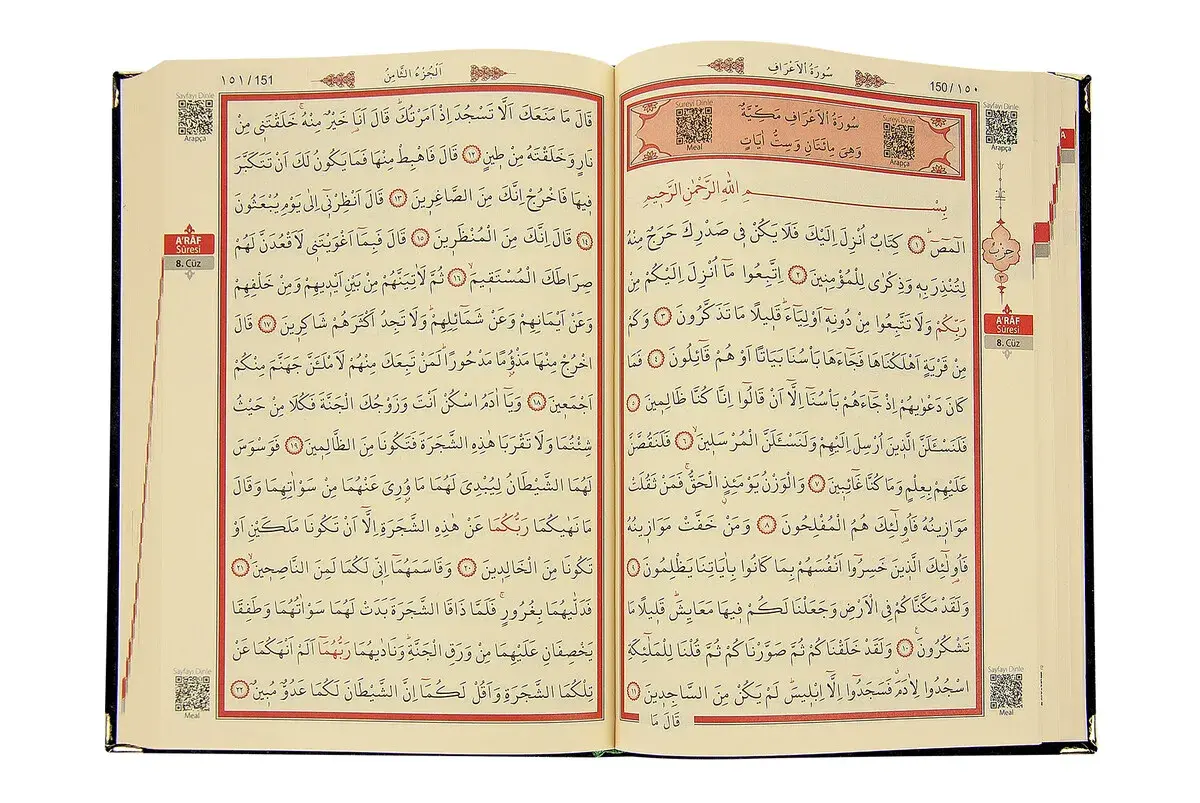 سُورَةُ الْاَعْرَافِ
150/١٥٠
Sureyi Dinle
Meal
سُورَةُ الْاَعْرَافِ مَكِّيَّةٌ
وَهِيَ مِائَتَانِ وَسِتُّ اٰيَاتٍ
Sureyi Dinle
Arapça
Sayfayı Dinle
Arapça
بِسْمِ اللّٰهِ الرَّحْمٰنِ الرَّحٖيمِ
الٓمٓصٓ ۚ ﴿١﴾ كِتَابٌ اُنْزِلَ اِلَيْكَ فَلَا يَكُنْ فٖى صَدْرِكَ حَرَجٌ مِنْهُ
لِتُنْذِرَ بِهٖ وَذِكْرٰى لِلْمُؤْمِنٖينَ ﴿٢﴾ اِتَّبِعُوا مَٓا اُنْزِلَ اِلَيْكُمْ مِنْ
رَبِّكُمْ وَلَا تَتَّبِعُوا مِنْ دُونِهٖٓ اَوْلِيَٓاءَۜ قَلٖيلًا مَا تَذَكَّرُونَ ﴿٣﴾ وَكَمْ
مِنْ قَرْيَةٍ اَهْلَكْنَاهَا فَجَٓاءَهَا بَأْسُنَا بَيَاتًا اَوْ هُمْ قَٓائِلُونَ ﴿٤﴾ فَمَا
كَانَ دَعْوٰيهُمْ اِذْ جَٓاءَهُمْ بَأْسُنَٓا اِلَّٓا اَنْ قَالُٓوا اِنَّا كُنَّا ظَالِمٖينَ ﴿٥﴾
فَلَنَسْـَٔلَنَّ الَّذٖينَ اُرْسِلَ اِلَيْهِمْ وَلَنَسْـَٔلَنَّ الْمُرْسَلٖينَۙ ﴿٦﴾ فَلَنَقُصَّنَّ
عَلَيْهِمْ بِعِلْمٍ وَمَا كُنَّا غَٓائِبٖينَ ﴿٧﴾ وَالْوَزْنُ يَوْمَئِذٍ الْحَقُّۚ فَمَنْ ثَقُلَتْ
مَوَازٖينُهُ فَاُو۬لٰٓئِكَ هُمُ الْمُفْلِحُونَ ﴿٨﴾ وَمَنْ خَفَّتْ مَوَازٖينُهُ
فَاُو۬لٰٓئِكَ الَّذٖينَ خَسِرُٓوا اَنْفُسَهُمْ بِمَا كَانُوا بِاٰيَاتِنَا يَظْلِمُونَ ﴿٩﴾
وَلَقَدْ مَكَّنَّاكُمْ فِى الْاَرْضِ وَجَعَلْنَا لَكُمْ فٖيهَا مَعَايِشَۜ قَلٖيلًا مَا
تَشْكُرُونَ۟ ﴿١٠﴾ وَلَقَدْ خَلَقْنَاكُمْ ثُمَّ صَوَّرْنَاكُمْ ثُمَّ قُلْنَا لِلْمَلٰٓئِكَةِ
اسْجُدُوا لِاٰدَمَۗ فَسَجَدُٓوا اِلَّٓا اِبْلٖيسَۜ لَمْ يَكُنْ مِنَ السَّاجِدٖينَ ﴿١١﴾
قَالَ مَا
حزب
A'RÂF
Sûresi
8. Cüz
Sayfayı Dinle
Meal
اَلْجُزْءُ الثَّامِنُ
١٥١/151
Sayfayı Dinle
Arapça
قَالَ مَا مَنَعَكَ اَلَّا تَسْجُدَ اِذْ اَمَرْتُكَۜ قَالَ اَنَا خَيْرٌ مِنْهُۚ خَلَقْتَنٖى مِنْ
نَارٍ وَخَلَقْتَهُ مِنْ طٖينٍ ﴿١٢﴾ قَالَ فَاهْبِطْ مِنْهَا فَمَا يَكُونُ لَكَ اَنْ تَتَكَبَّرَ
فٖيهَا فَاخْرُجْ اِنَّكَ مِنَ الصَّاغِرٖينَ ﴿١٣﴾ قَالَ اَنْظِرْنٖٓى اِلٰى يَوْمِ يُبْعَثُونَ
﴿١٤﴾ قَالَ اِنَّكَ مِنَ الْمُنْظَرٖينَ ﴿١٥﴾ قَالَ فَبِمَٓا اَغْوَيْتَنٖى لَاَقْعُدَنَّ لَهُمْ
صِرَاطَكَ الْمُسْتَقٖيمَۙ ﴿١٦﴾ ثُمَّ لَاٰتِيَنَّهُمْ مِنْ بَيْنِ اَيْدٖيهِمْ وَمِنْ خَلْفِهِمْ
وَعَنْ اَيْمَانِهِمْ وَعَنْ شَمَٓائِلِهِمْۜ وَلَا تَجِدُ اَكْثَرَهُمْ شَاكِرٖينَ ﴿١٧﴾ قَالَ
اخْرُجْ مِنْهَا مَذْؤُ۫مًا مَدْحُورًاۜ لَمَنْ تَبِعَكَ مِنْهُمْ لَاَمْلَـَٔنَّ جَهَنَّمَ مِنْكُمْ
اَجْمَعٖينَ ﴿١٨﴾ وَيَٓا اٰدَمُ اسْكُنْ اَنْتَ وَزَوْجُكَ الْجَنَّةَ فَكُلَا مِنْ حَيْثُ
شِئْتُمَا وَلَا تَقْرَبَا هٰذِهِ الشَّجَرَةَ فَتَكُونَا مِنَ الظَّالِمٖينَ ﴿١٩﴾ فَوَسْوَسَ
لَهُمَا الشَّيْطَانُ لِيُبْدِىَ لَهُمَا مَا وُ۫رِىَ عَنْهُمَا مِنْ سَوْاٰتِهِمَا وَقَالَ
مَا نَهٰيكُمَا رَبُّكُمَا عَنْ هٰذِهِ الشَّجَرَةِ اِلَّٓا اَنْ تَكُونَا مَلَكَيْنِ اَوْ
تَكُونَا مِنَ الْخَالِدٖينَ ﴿٢٠﴾ وَقَاسَمَهُمَٓا اِنّٖى لَكُمَا لَمِنَ النَّاصِحٖينَۙ ﴿٢١﴾
فَدَلّٰيهُمَا بِغُرُورٍۚ فَلَمَّا ذَاقَا الشَّجَرَةَ بَدَتْ لَهُمَا سَوْاٰتُهُمَا وَطَفِقَا
يَخْصِفَانِ عَلَيْهِمَا مِنْ وَرَقِ الْجَنَّةِۜ وَنَادٰيهُمَا رَبُّهُمَٓا اَلَمْ اَنْهَكُمَا عَنْ
تِلْكُمَا الشَّجَرَةِ وَاَقُلْ لَكُمَٓا اِنَّ الشَّيْطَانَ لَكُمَا عَدُوٌّ مُبٖينٌ ﴿٢٢﴾
A'RÂF
Sûresi
8. Cüz
Sayfayı Dinle
Meal